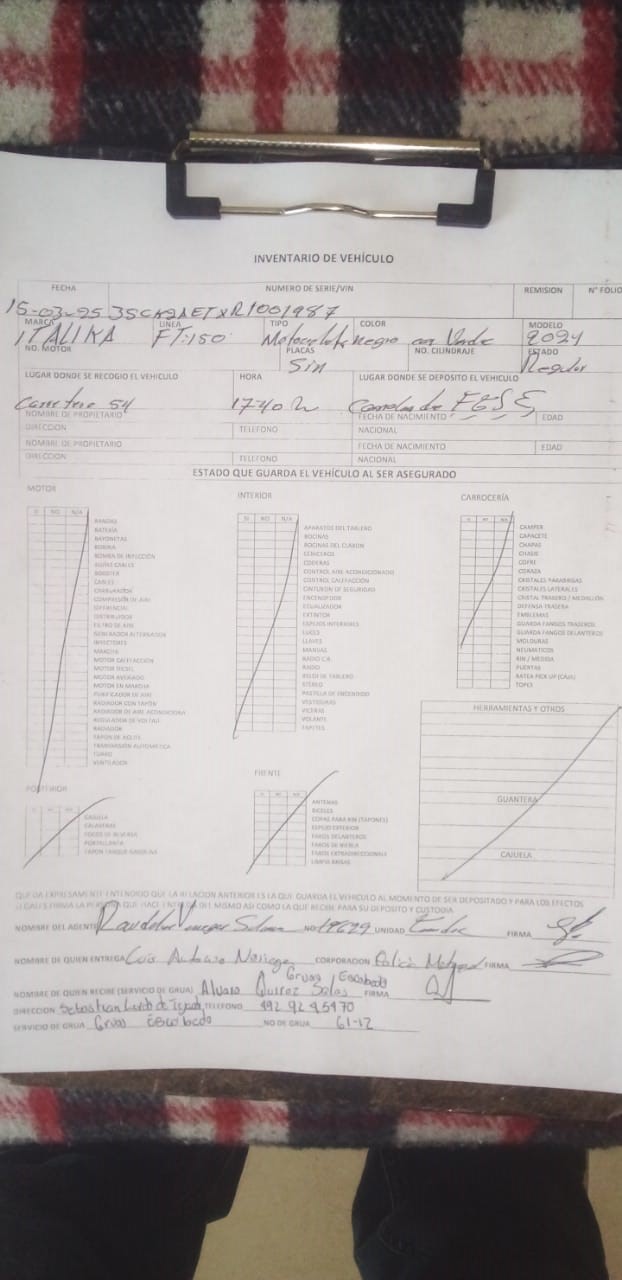 INVENTARIO DE VEHÍCULO
FECHA NUMERO DE SERIE/VIN REMISION N° FOLIO
15-03-25 3SCK2AETXR1001987
MARCA LINEA TIPO COLOR MODELO
ITALIKA FT-150 Motocicleta negro con Verde 2024
NO. MOTOR PLACAS NO. CILINDRAJE ESTADO
Sin Regular
LUGAR DONDE SE RECOGIO EL VEHICULO HORA LUGAR DONDE SE DEPOSITO EL VEHICULO
Carretera 54 1740 h
NOMBRE DE PROPIETARIO FECHA DE NACIMIENTO EDAD
DIRECCION TELEFONO NACIONAL
NOMBRE DE PROPIETARIO FECHA DE NACIMIENTO EDAD
DIRECCION TELEFONO NACIONAL
ESTADO QUE GUARDA EL VEHÍCULO AL SER ASEGURADO
MOTOR
SI NO N/A
BATERÍA
BAYONETAS
BOBINA
BOMBA DE INYECCIÓN
BUJÍAS CABLES
BOOSTER
CABLES
CARBURADOR
COMPRESIÓN DE AIRE
DIFERENCIAL
DISTRIBUIDOR
FILTRO DE AIRE
GENERADOR ALTERNADOR
INYECTORES
MARCHA
MOTOR CALEFACCION
MOTOR DIESEL
MOTOR AVERIADO
MOTOR EN MARCHA
PURIFICADOR DE AIRE
RADIADOR CON TAPÓN
RADIADOR DE AIRE ACONDICIONA
REGULADOR DE VOLTAJE
RADIADOR
TAPON DE ACEITE
TRANSMISIÓN AUTOMATICA
TURBO
VENTILADOR
INTERIOR
SI NO N/A
APARATOS DEL TABLERO
BOCINAS
BOCINAS DEL CLAXON
CENICEROS
CODERAS
CONTROL AIRE ACONDICIONADO
CONTROL CALEFACCION
CINTURON DE SEGURIDAD
ENCENDEDOR
ECUALIZADOR
EXTINTOR
ESPEJOS INTERIORES
LUCES
LLAVES
MANIJAS
RADIO C.B.
RADIO
RELOJ DE TABLERO
STEREO
PASTILLA DE ENCENDIDO
VESTIDURAS
VICERAS
VOLANTE
TAPETES
CARROCERÍA
CAMPER
CAPACETE
CHAPAS
CHASIS
COFRE
CORAZA
CRISTALES PARABRISAS
CRISTALES LATERALES
CRISTAL TRASERO / MEDALLÓN
DEFENSA TRASERA
EMBLEMAS
GUARDA FANGOS TRASEROS
GUARDA FANGOS DELANTEROS
MOLDURAS
NEUMATICOS
RIN / MEDIDA
PUERTAS
BATEA PICK UP (CAJA)
TOPES
HERRAMIENTAS Y OTROS
GUANTERA
CAJUELA
POSTERIOR
CAJUELA
CALAVERAS
FOCOS DE REVERSA
PORTALLANTA
TAPON TANQUE GASOLINA
FRENTE
ANTENAS
BICELES
COPAS PARA RIN (TAPONES)
ESPEJO EXTERIOR
FAROS DELANTEROS
FAROS DE NIEBLA
FAROS EXTRADIRECCIONALE
LIMPIA BRISAS
QUEDA EXPRESAMENTE ENTENDIDO QUE LA RELACION ANTERIOR ES LA QUE GUARDA EL VEHICULO AL MOMENTO DE SER DEPOSITADO Y PARA LOS EFECTOS
LEGALES FIRMA LA PERSONA QUE HACE ENTREGA DEL MISMO ASI COMO LA QUE RECIBE PARA SU DEPOSITO Y CUSTODIA
NOMBRE DEL AGENTE NO UNIDAD FIRMA
NOMBRE DE QUIEN ENTREGA Luis Antonio Noriega CORPORACION Policia FIRMA
Gruas Escobedo
NOMBRE DE QUIEN RECIBE (SERVICIO DE GRUA) Alvaro Quiroz Salas FIRMA
DIRECCION Sebastian Lerdo de Tejada TELEFONO 492 92 4 5470
SERVICIO DE GRUA Gruas Escobedo NO DE GRUA 61-12